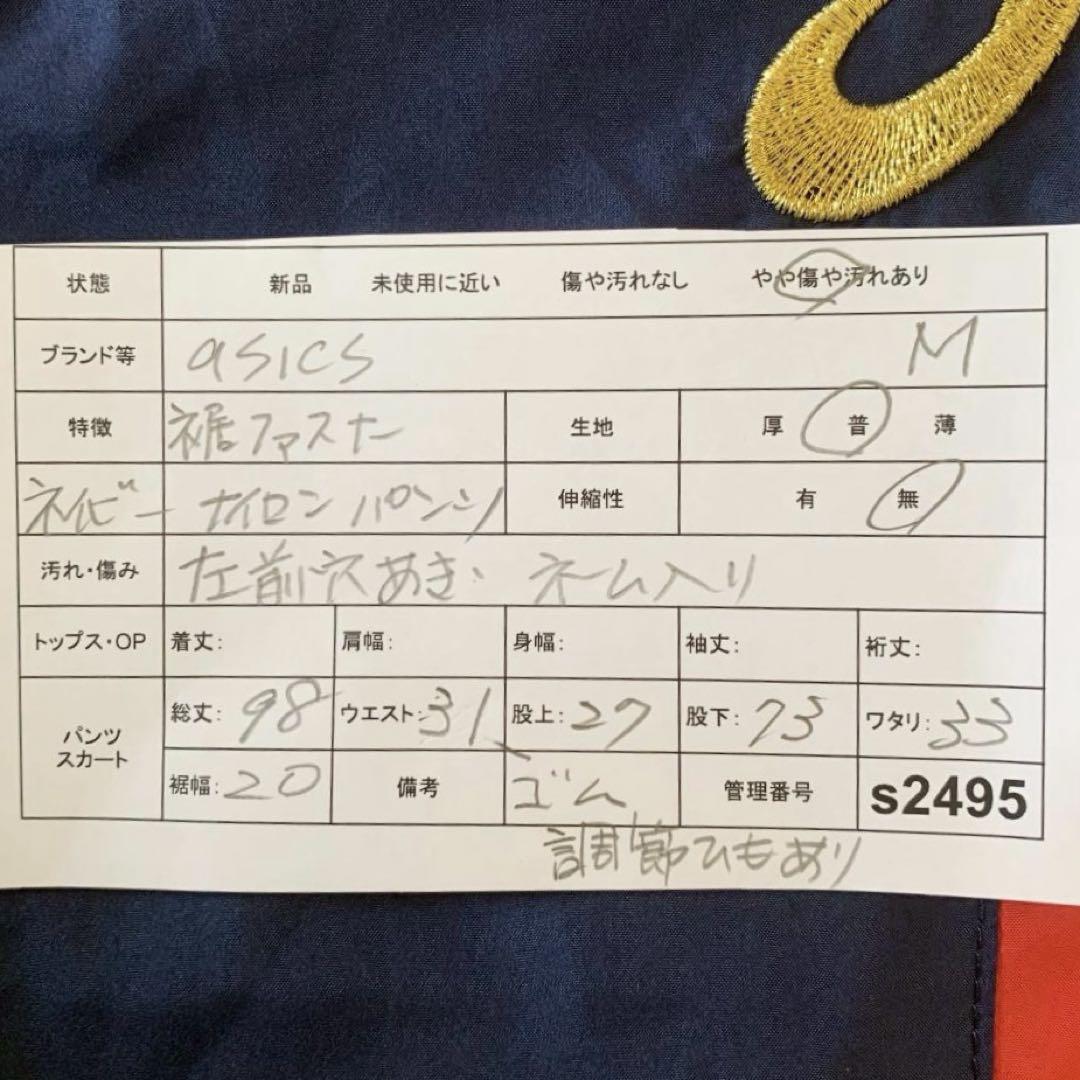 状態 新品 未使用に近い 傷や汚れなし やや傷や汚れあり
ブランド等 asics M
特徴 裾ファスナー 生地 厚 普 薄
ネイビー ナイロンパンツ 伸縮性 有 無
汚れ・傷み 左前穴あき、ネーム入り
トップス・OP 着丈: 肩幅: 身幅: 袖丈: 裄丈:
パンツ スカート 総丈: 98 ウエスト: 31 股上: 27 股下: 73 ワタリ: 33
裾幅: 20 備考 ゴム 管理番号 s2495
調節ひもあり